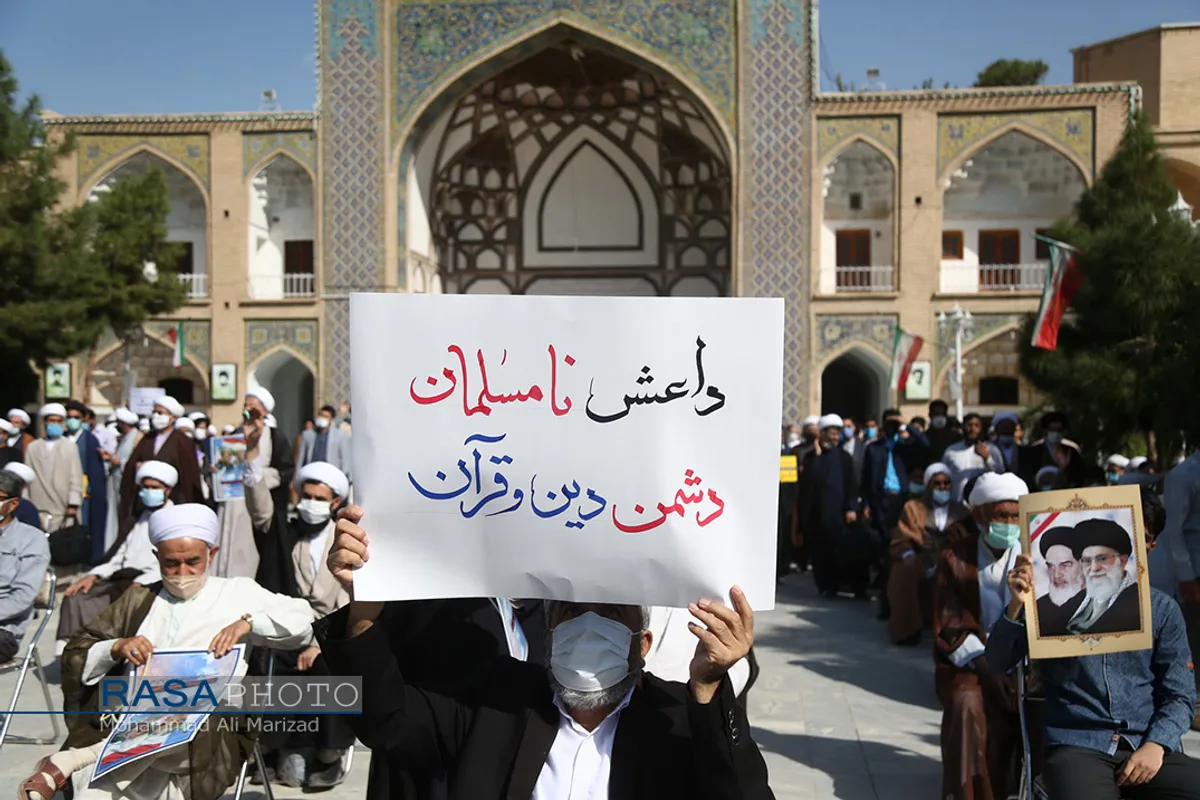 داعش نا مسلمان
دشمن دین و قرآن
RASAPHOTO
Mohammad Ali Marizad